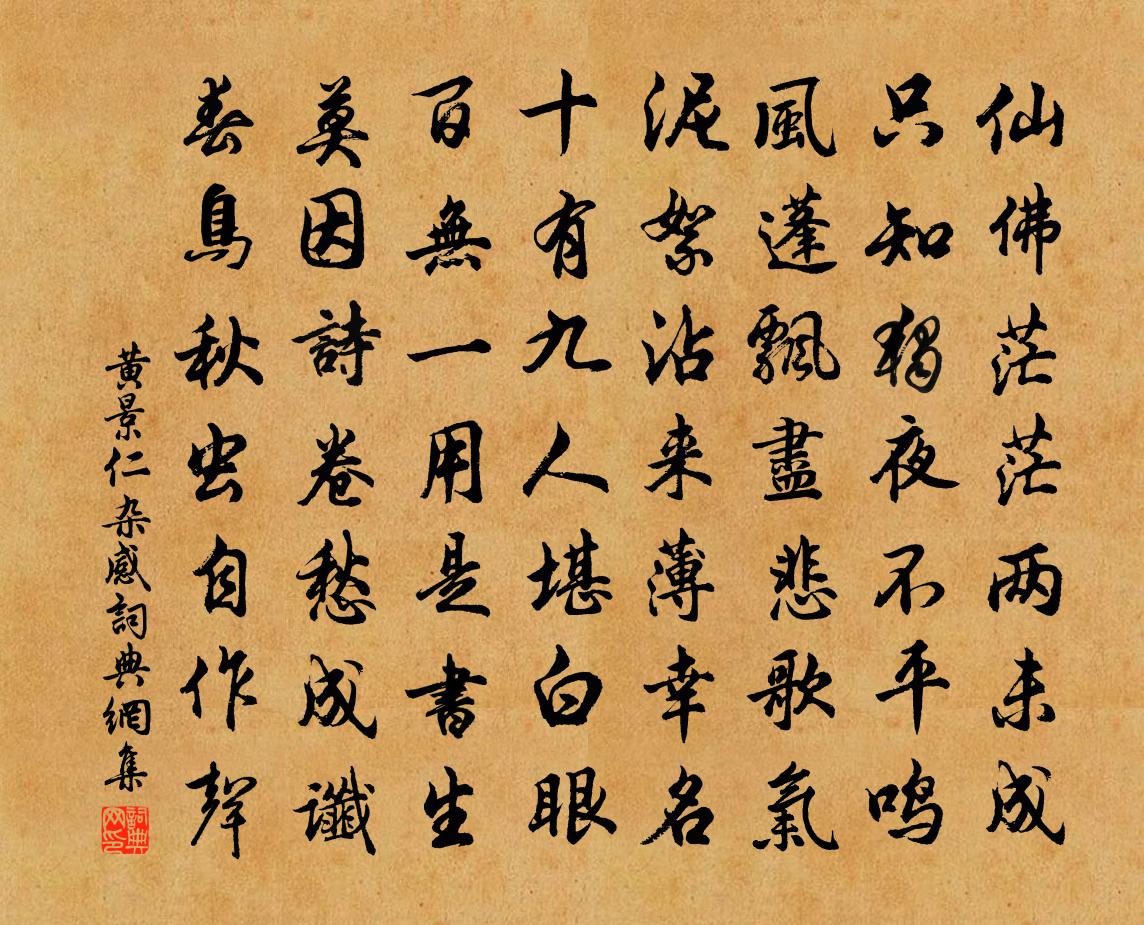 仙佛茫茫两未成
只知獨夜不平鳴
風蓬飄盡悲歌氣
泥絮沾来薄幸名
十有九人堪白眼
百無一用是書生
莫因詩卷愁成讖
春鳥秋虫自作聲
黄景仁杂感詞典網集
詞典
网印